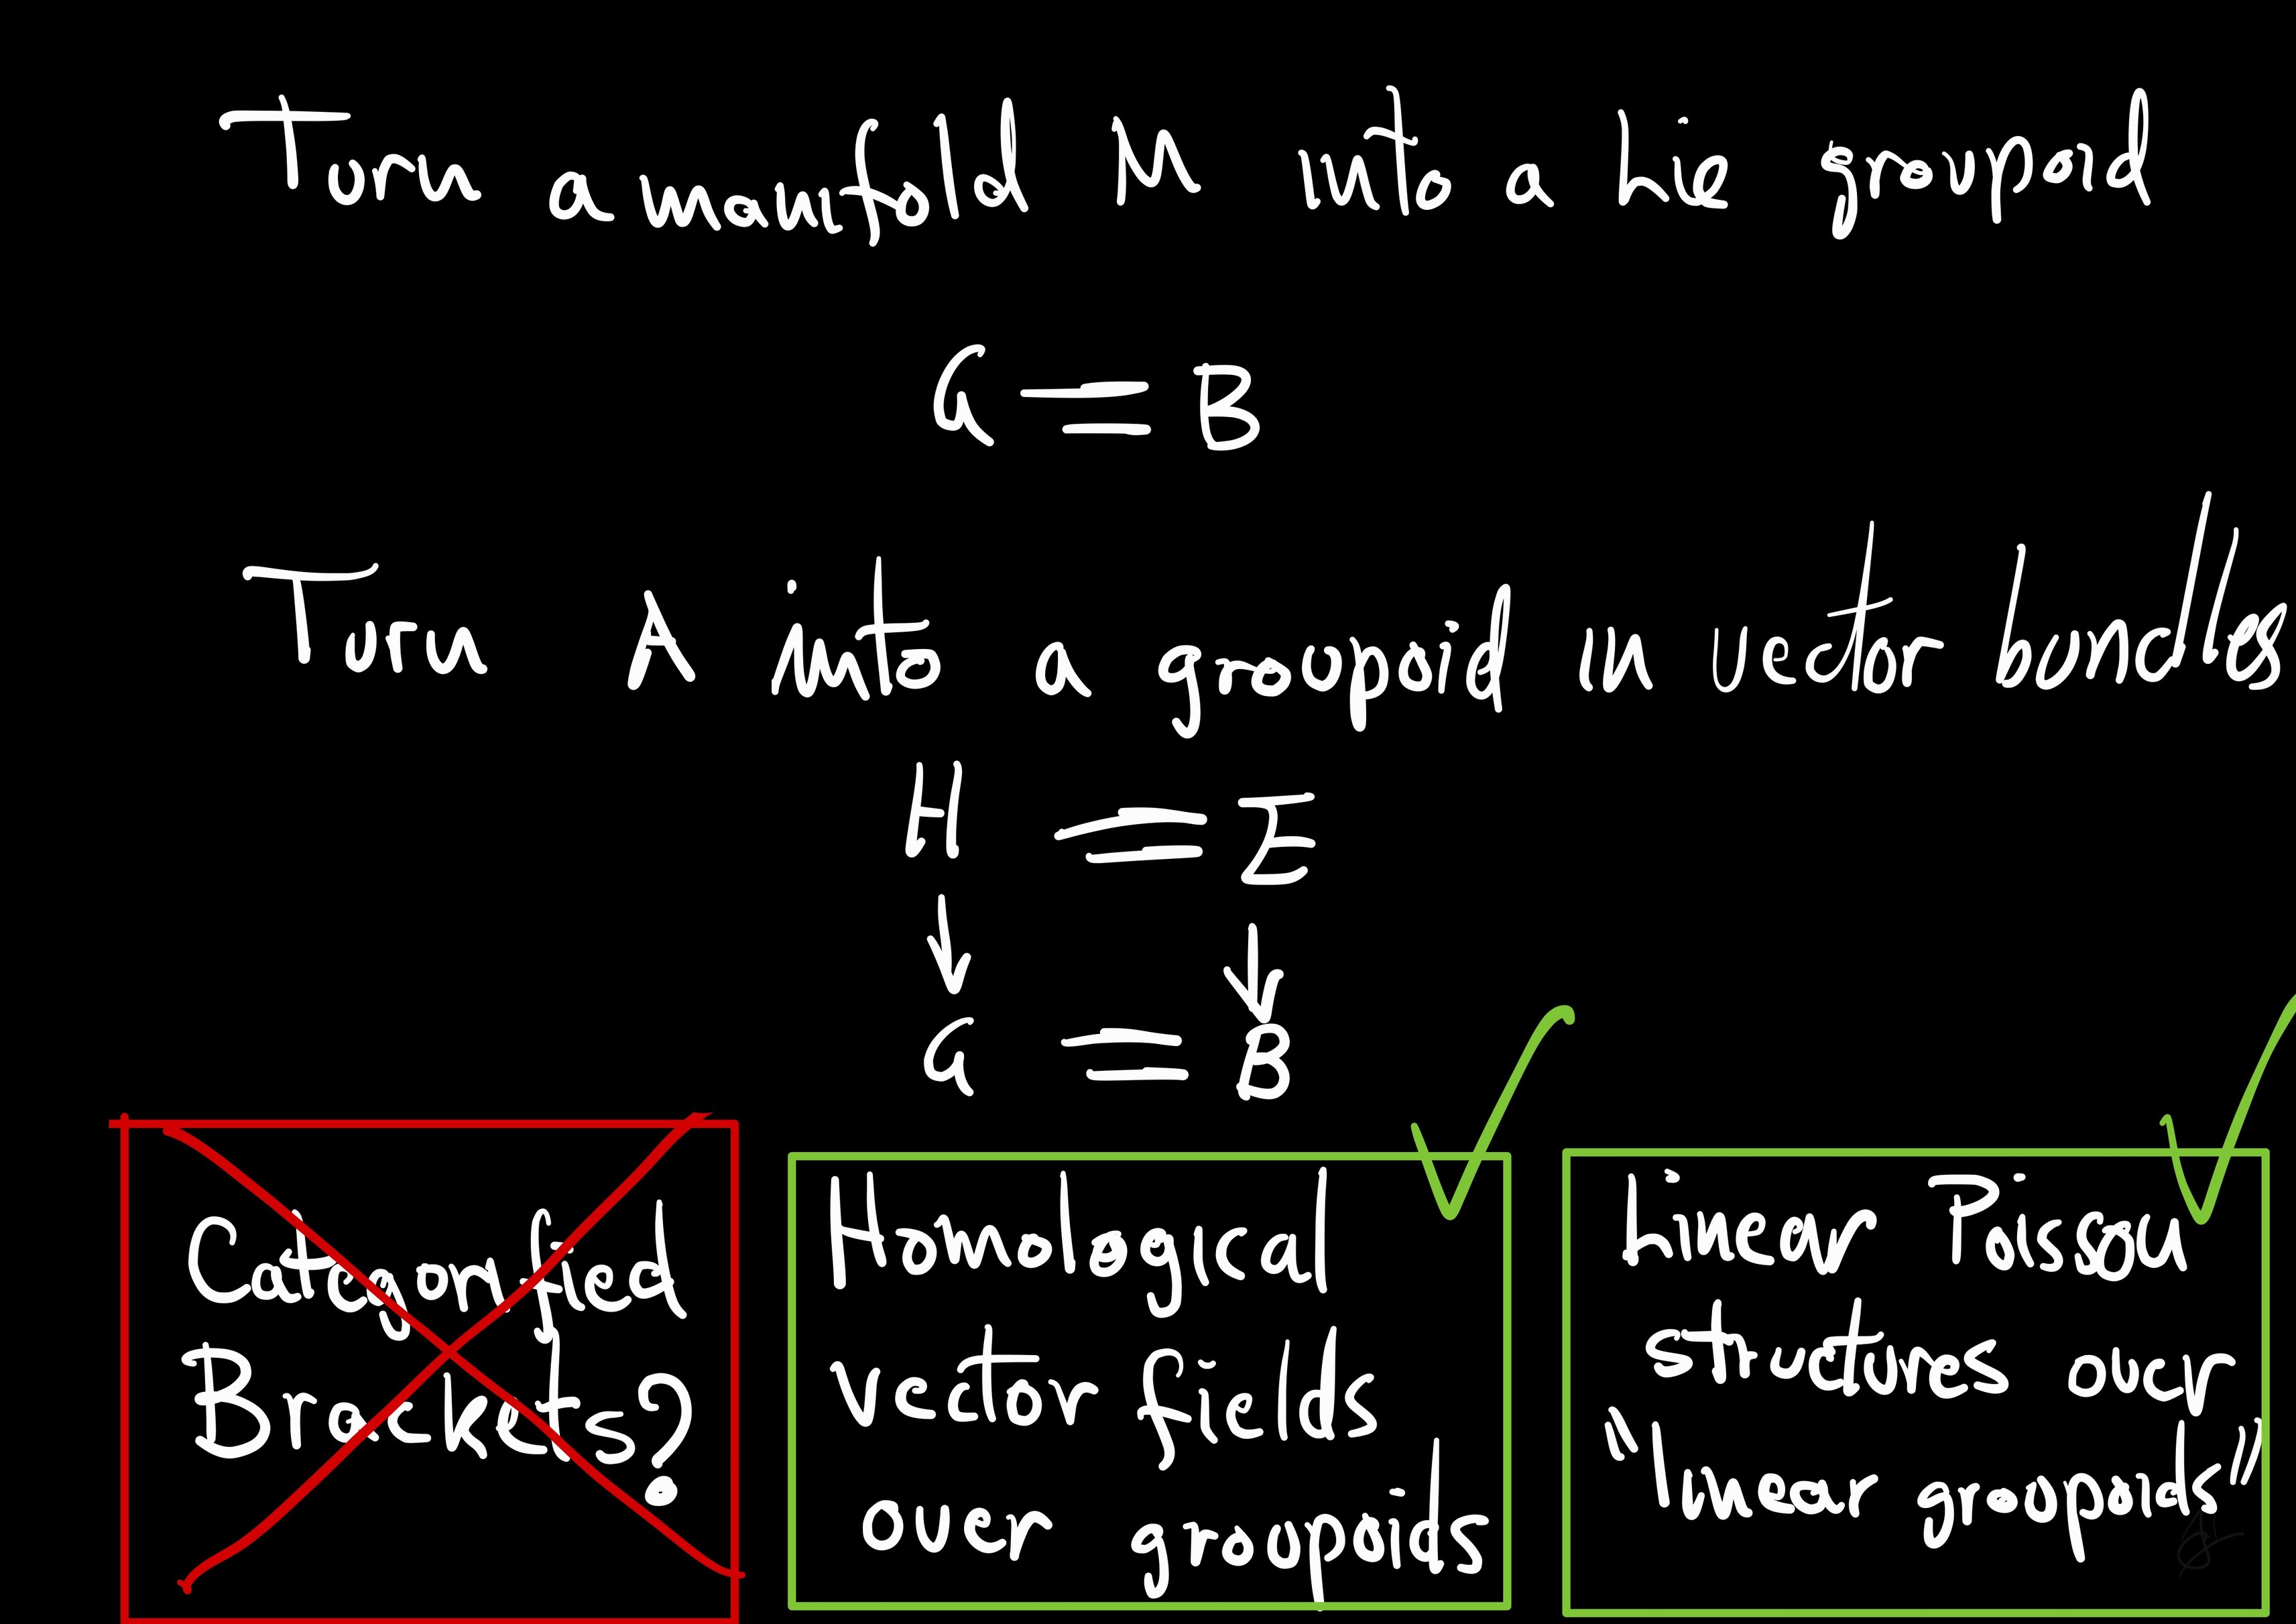 Turn a manifold M into a Lie groupoid
G = B
Turn A into a groupoid in vector bundles
H = E
↓ ↓
G = B
Categorified
Brackets?
Homological
vector fields
over groupoids
Linear Poisson
structures over
"linear groupoids"